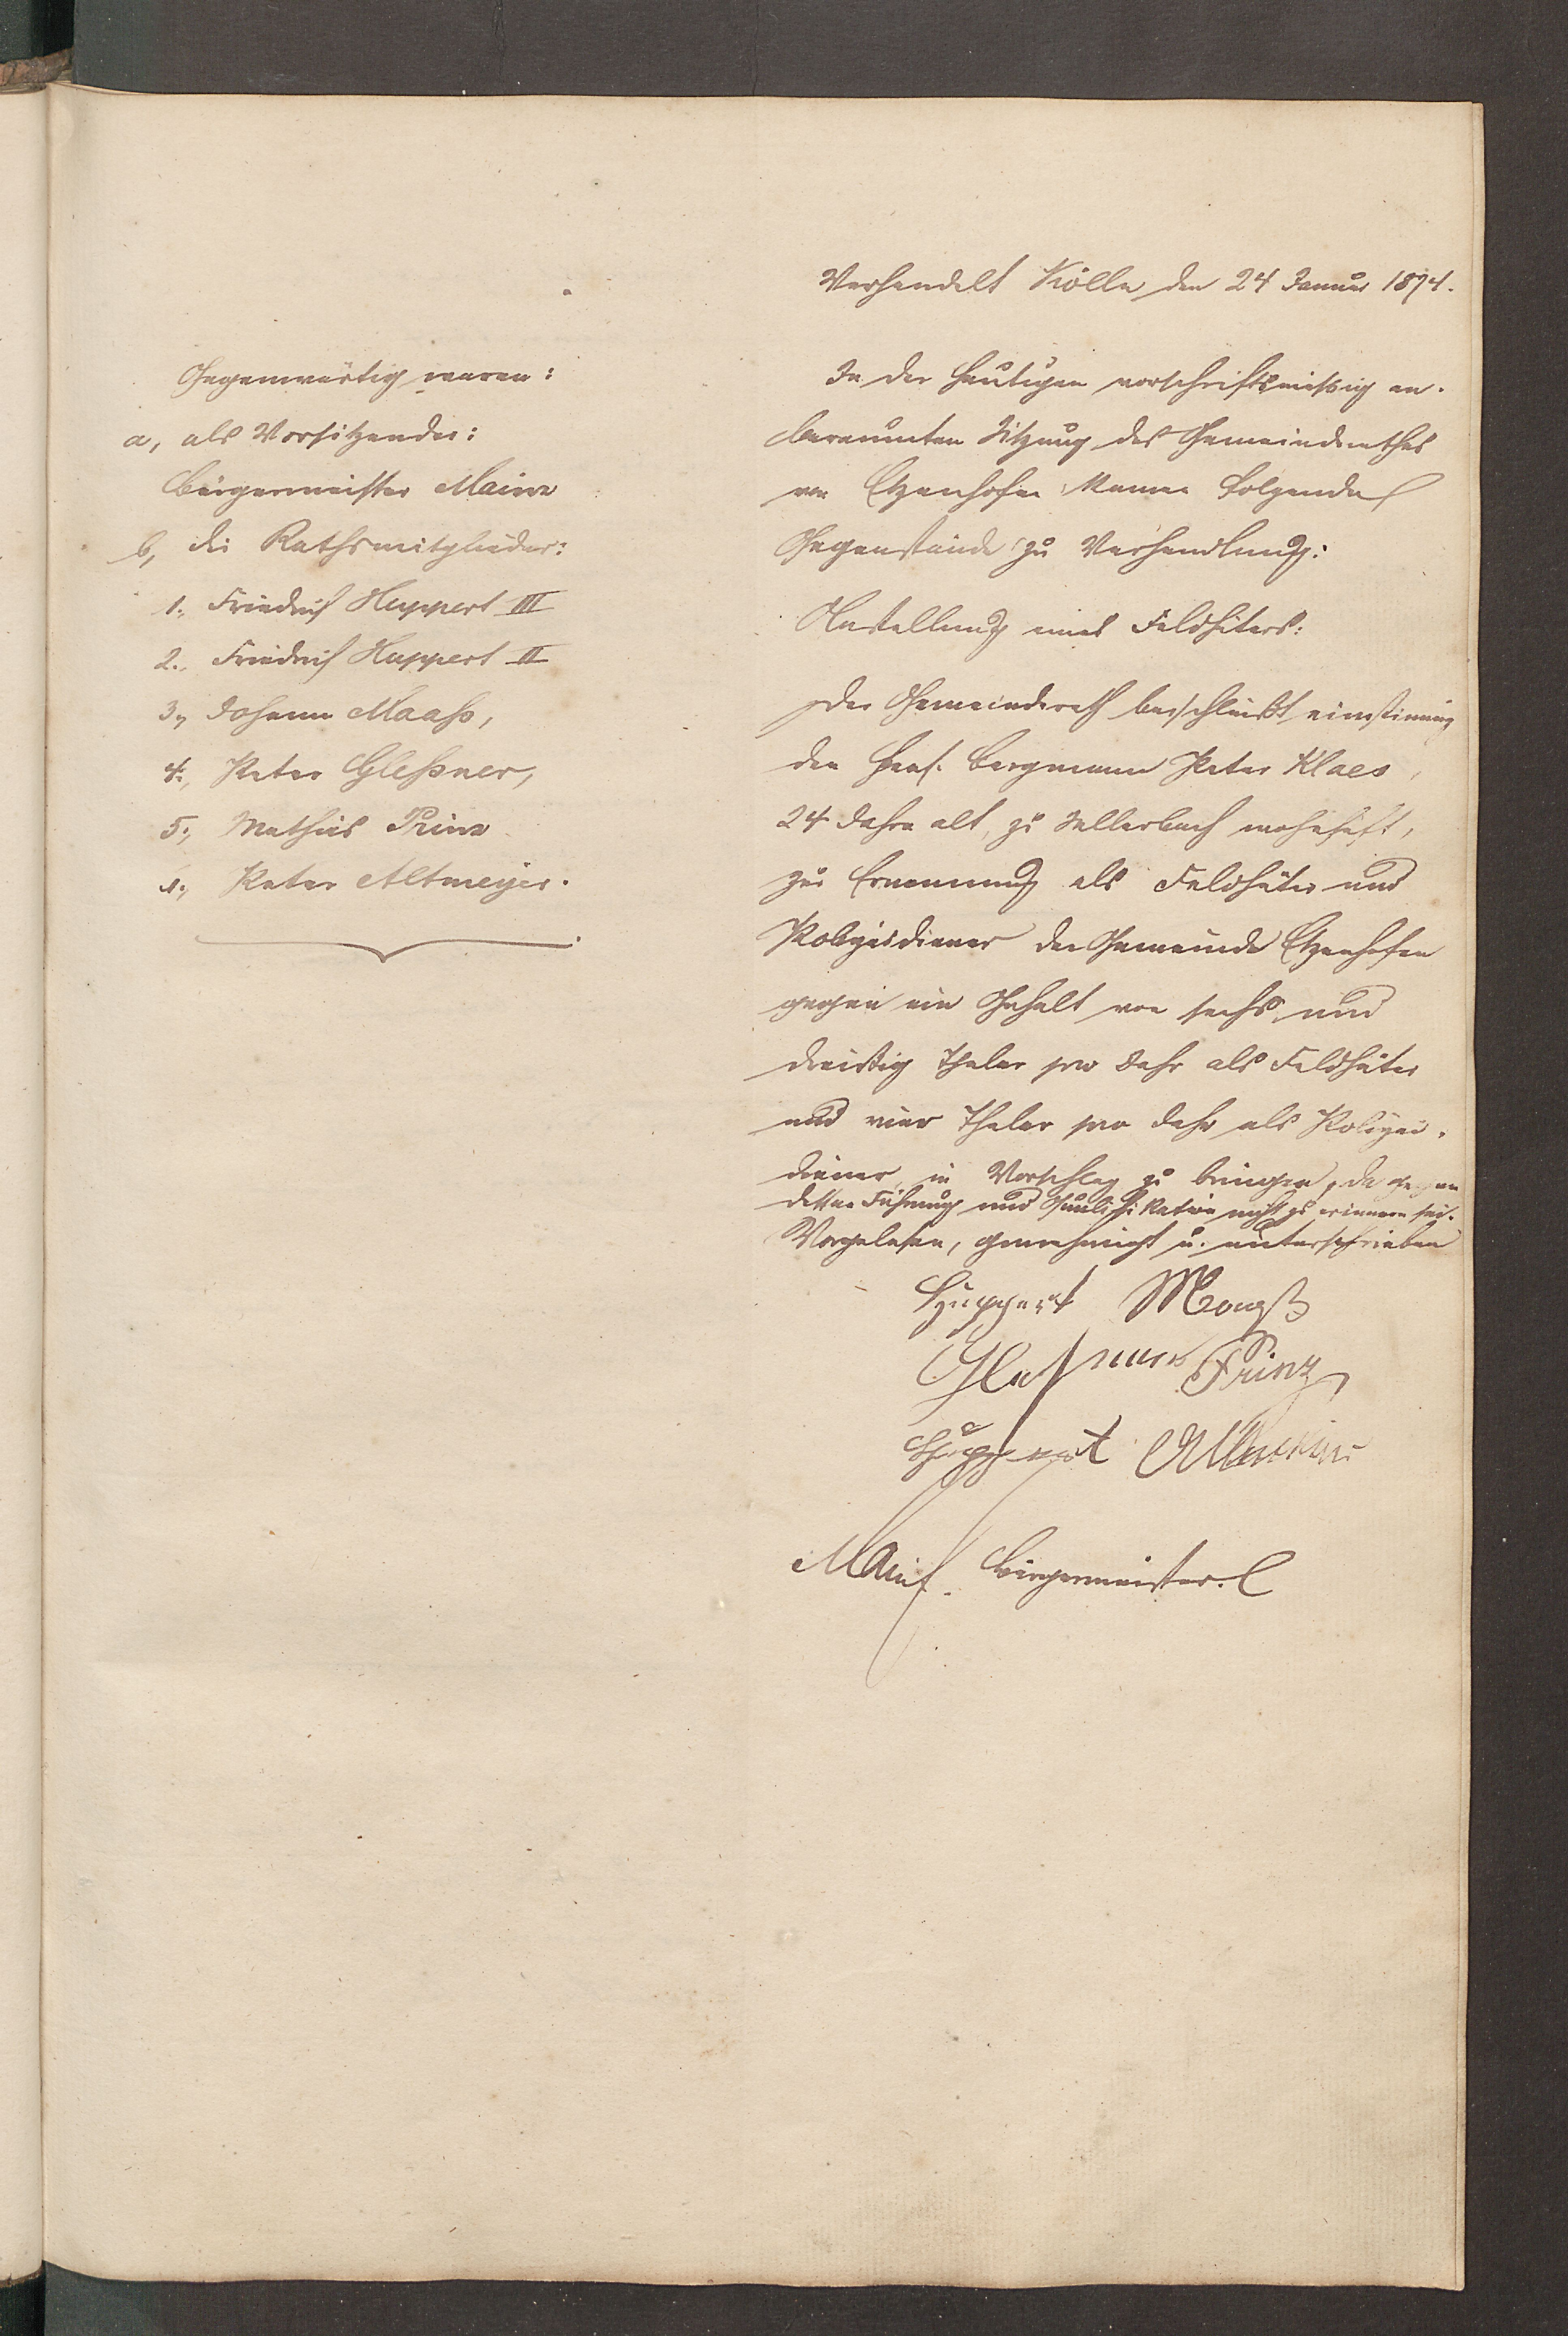 Verhandelt Kölln den 24 Januar 1874.
Gegenwärtig waren:
a, als Vorsitzender:
Bürgermeister Mainz
b, die Rathsmitglieder:
1., Friedrich Huppert III
2., Friedrich Huppert II
3., Johann Maaß,
4., Peter Gleßner,
5., Mathias Prinz
6., Peter Altmeyer.
In der heutigen vorschriftsmäßig an-
beraumten Sitzung des Gemeinderathes
von Etzenhofen kamen folgende
Gegenstände zu Verhandlung:
Anstellung eines Feldhüters:
Der Gemeinderath beschließt einstimmig
den Bergmann Peter Klaes,
24 Jahre alt, zu Sellerbach wohnhaft,
zur Ernennung als Feldhüter und
Polizeidiener der Gemeinde Etzenhofen
gegen ein Gehalt von sechs und
dreißig Thaler pro Jahr als Feldhüter
und vier Thaler pro Jahr als Polizei-
diener in Vorschlag zu bringen, da gegen
dessen Führung und Qualifikation nichts zu erinnern sei.
Vorgelesen, genehmigt u. unterschrieben
Huppert Maaß
Gleßner Prinz
Huppert Altmeyer
Mainz Bürgermeister.